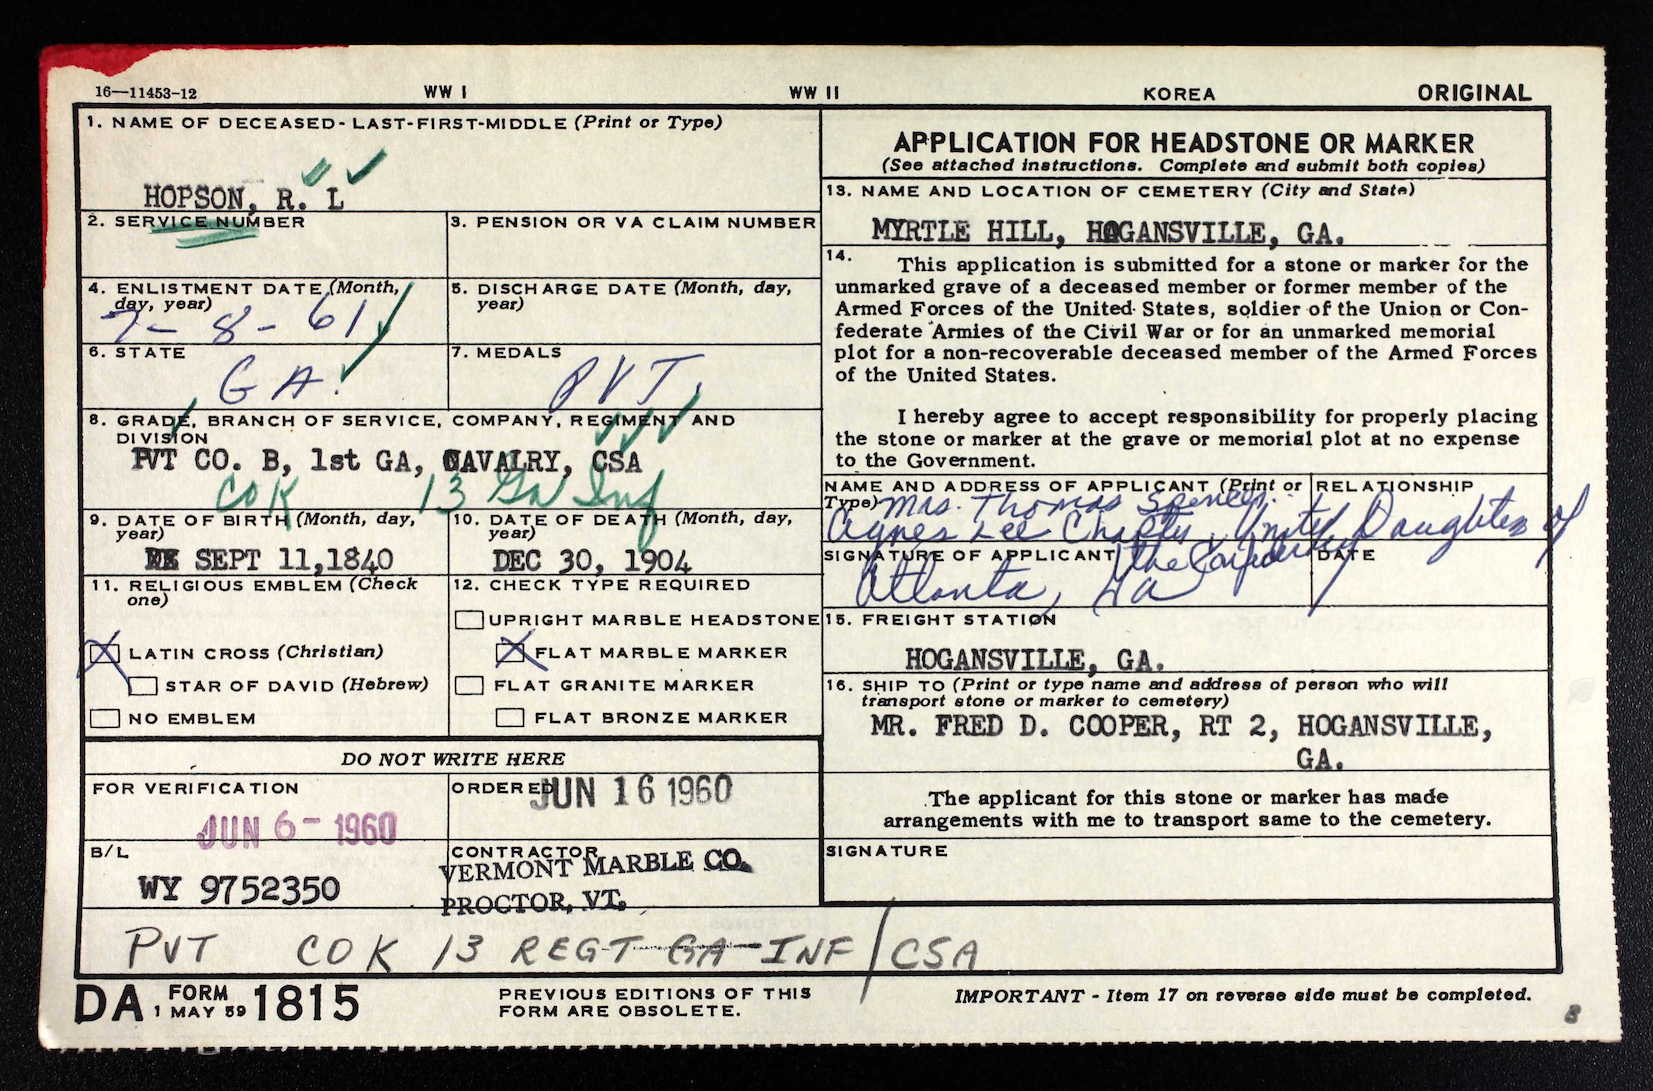 16—11453-12 WW I WW II KOREA ORIGINAL
1. NAME OF DECEASED - LAST-FIRST-MIDDLE (Print or Type)
HOPSON, R. L
2. SERVICE NUMBER
3. PENSION OR VA CLAIM NUMBER
4. ENLISTMENT DATE (Month,
day, year)
7-8-61
5. DISCHARGE DATE (Month, day,
year)
6. STATE
GA.
7. MEDALS
PVT.
8. GRADE, BRANCH OF SERVICE, COMPANY, REGIMENT AND
DIVISION
PVT CO. B, 1st GA, CAVALRY, CSA
CO K 13 Ga Inf
9. DATE OF BIRTH (Month, day,
year)
SEPT 11,1840
10. DATE OF DEATH (Month, day,
year)
DEC 30, 1904
11. RELIGIOUS EMBLEM (Check
one)
LATIN CROSS (Christian)
STAR OF DAVID (Hebrew)
NO EMBLEM
12. CHECK TYPE REQUIRED
UPRIGHT MARBLE HEADSTONE
FLAT MARBLE MARKER
FLAT GRANITE MARKER
FLAT BRONZE MARKER
APPLICATION FOR HEADSTONE OR MARKER
(See attached instructions. Complete and submit both copies)
13. NAME AND LOCATION OF CEMETERY (City and State)
MYRTLE HILL, HOGANSVILLE, GA.
14. This application is submitted for a stone or marker for the
unmarked grave of a deceased member or former member of the
Armed Forces of the United States, soldier of the Union or Con-
federate Armies of the Civil War or for an unmarked memorial
plot for a non-recoverable deceased member of the Armed Forces
of the United States.
I hereby agree to accept responsibility for properly placing
the stone or marker at the grave or memorial plot at no expense
to the Government.
NAME AND ADDRESS OF APPLICANT (Print or
Type)
RELATIONSHIP
Mrs. Thomas Spencer.
Agnes Lee Chapter, United Daughters of
the Confederacy
SIGNATURE OF APPLICANT
DATE
Atlanta, Ga
15. FREIGHT STATION
HOGANSVILLE, GA.
16. SHIP TO (Print or type name and address of person who will
transport stone or marker to cemetery)
MR. FRED D. COOPER, RT 2, HOGANSVILLE,
GA.
The applicant for this stone or marker has made
arrangements with me to transport same to the cemetery.
SIGNATURE
DO NOT WRITE HERE
FOR VERIFICATION
JUN 6- 1960
ORDERED
JUN 16 1960
B/L
WY 9752350
CONTRACTOR
VERMONT MARBLE CO.
PROCTOR, VT.
PVT CO K 13 REGT GA-INF/CSA
DA FORM 1815
1 MAY 59
PREVIOUS EDITIONS OF THIS
FORM ARE OBSOLETE.
IMPORTANT - Item 17 on reverse side must be completed.